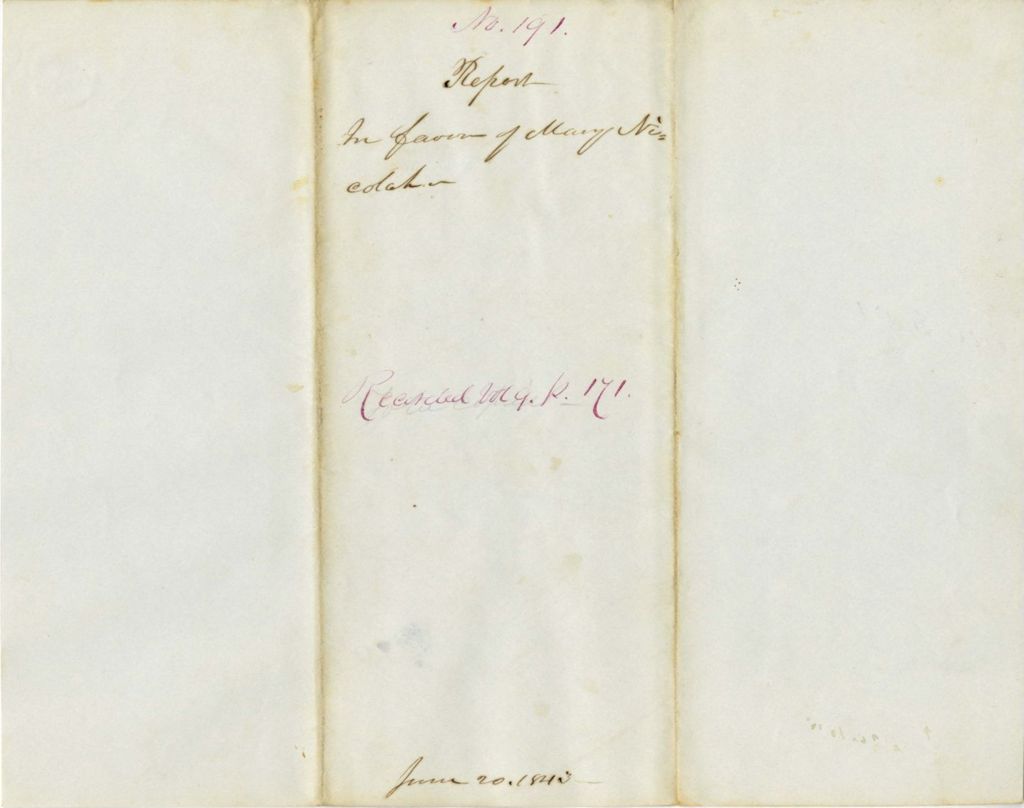 No. 191.
Report
In favor of Mary Ni=
colah
Recorded Vol 9. P. 171.
June 20. 1843